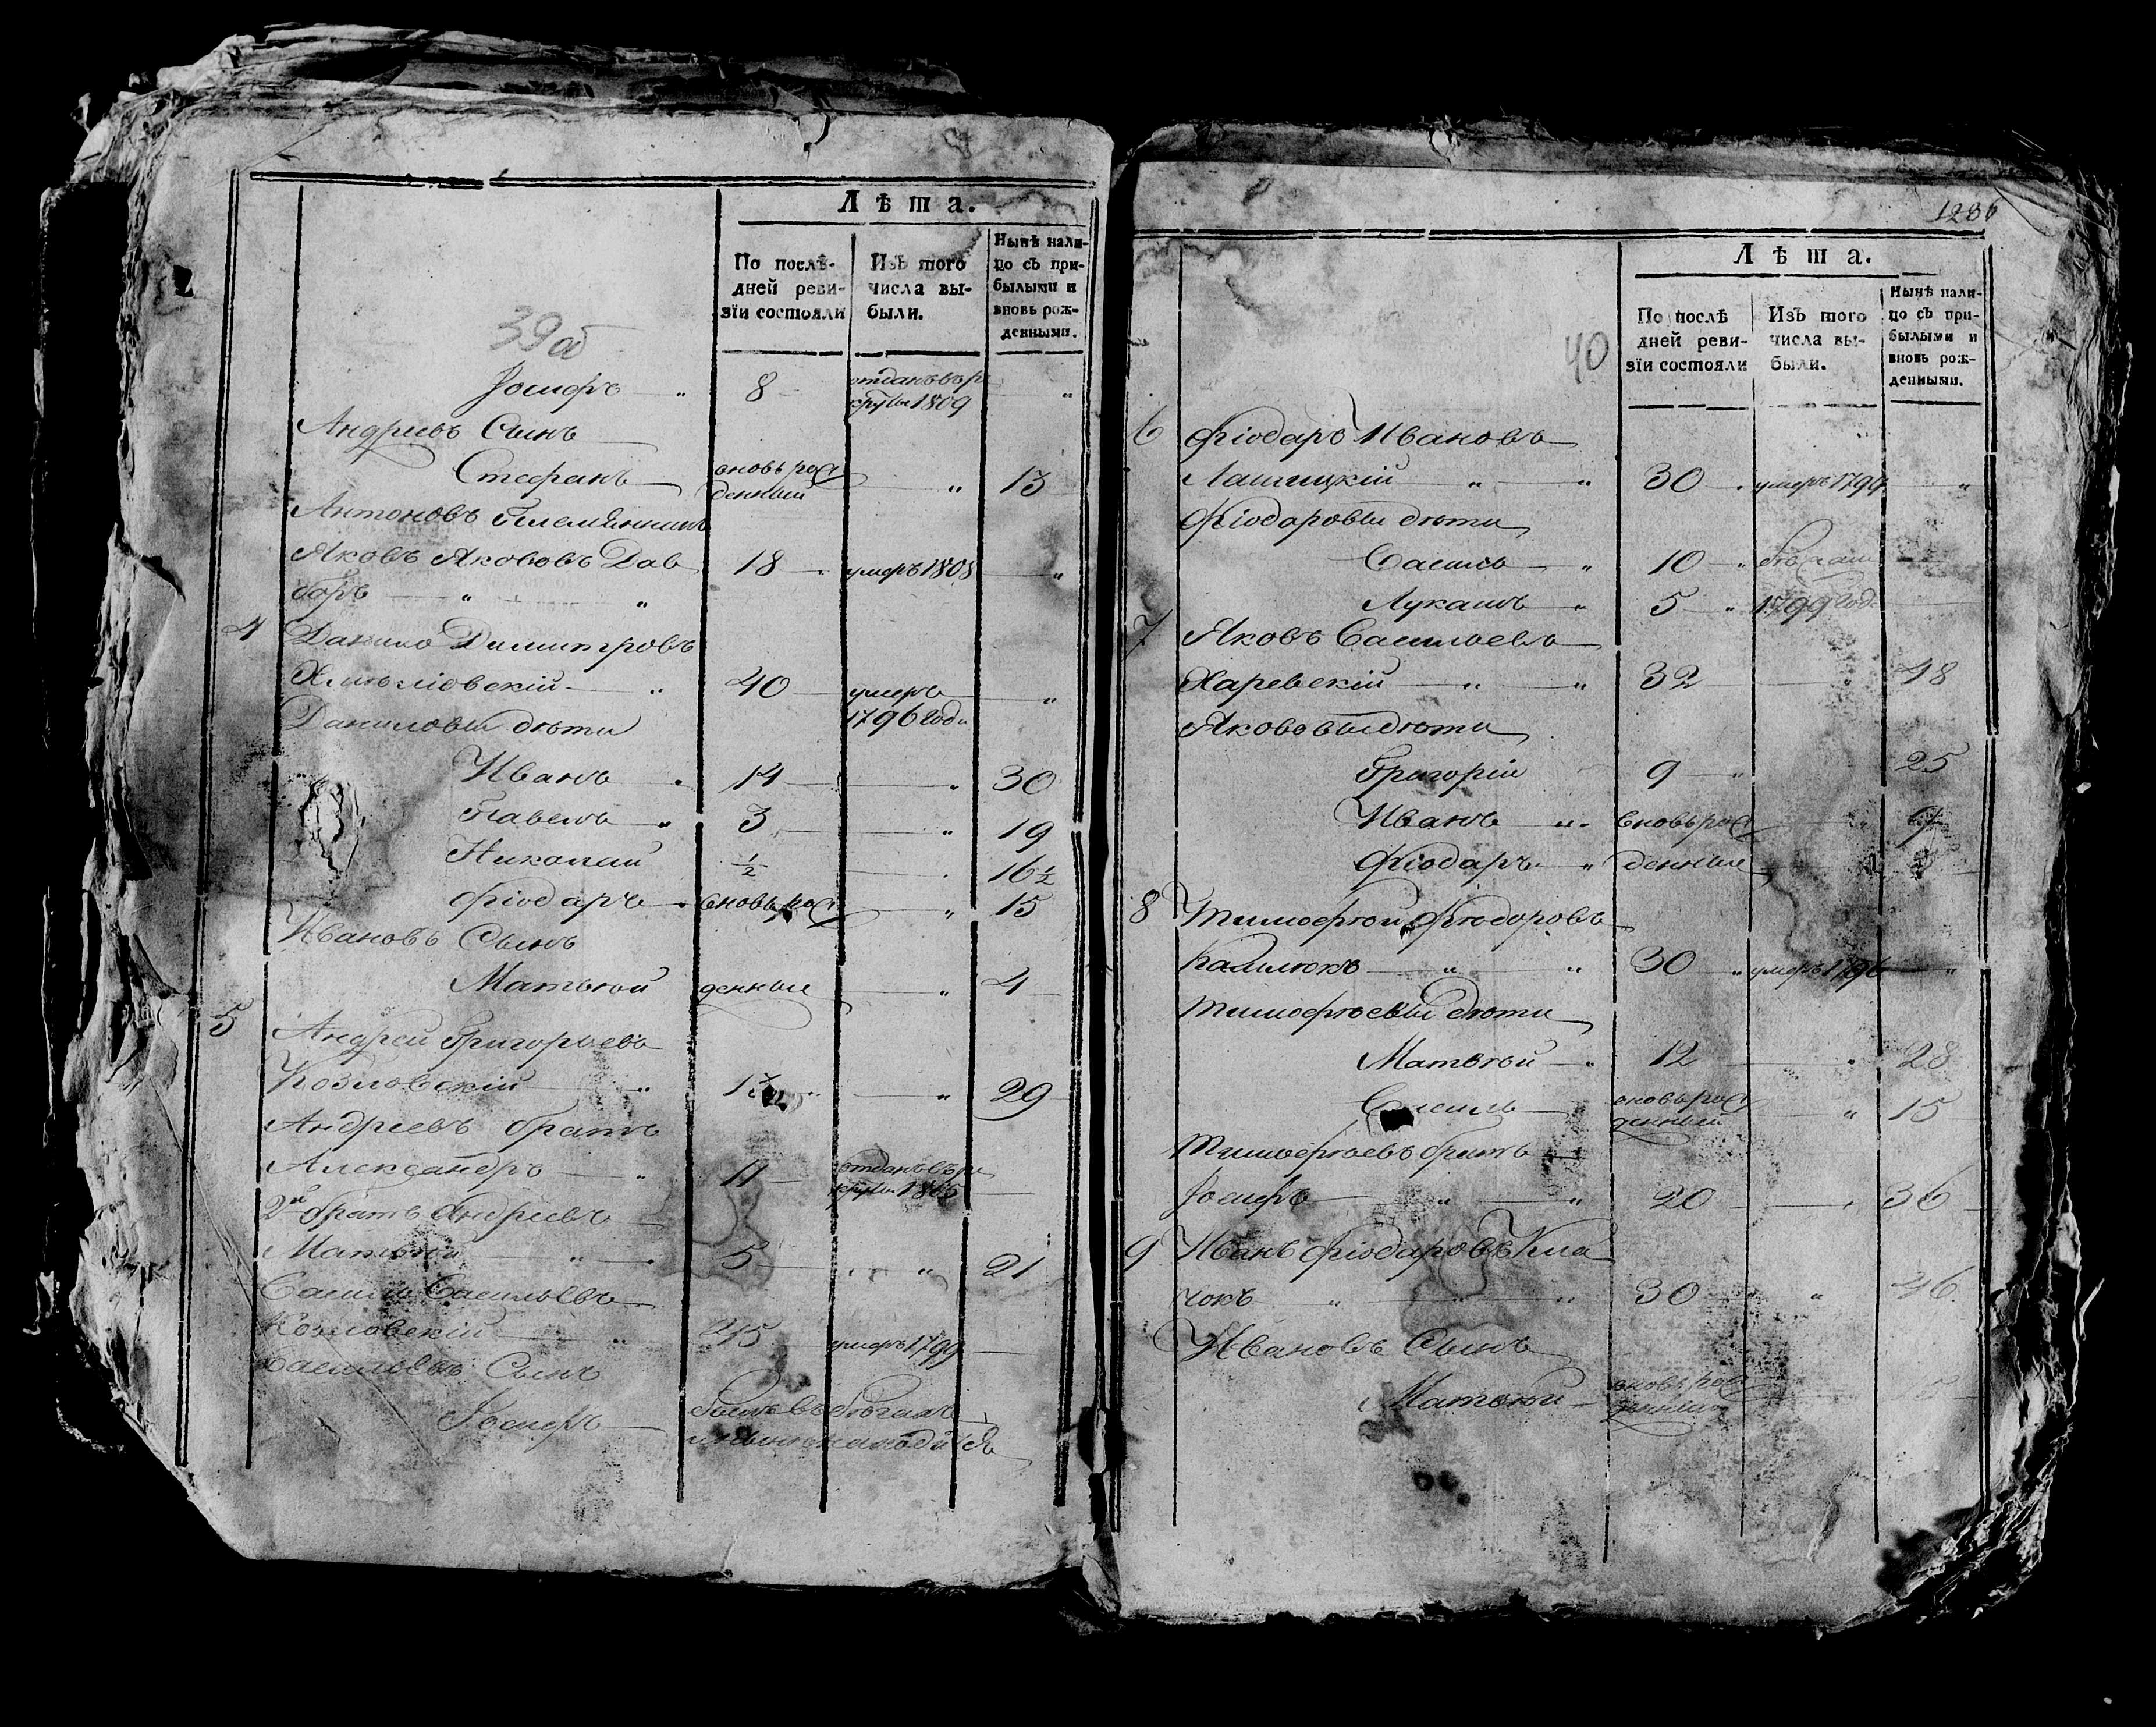 Лѣта.
По послѣ-
дней реви-
зїи состояли
Изъ того
числа вы-
были.
Нынѣ нали-
цо съ при-
былыми и
вновь рож-
денными.
39об
Іосифъ 8 отданъ въ ре
круты 1809
Андреевъ Сынъ
Стефанъ вновь рож
денный 13
Антоновъ племянникъ
Яковъ Якововъ Дав 18 умеръ 1808
боръ
4 Данило Димитровъ
40 умеръ
1796 года
Даниловы дѣти
Иванъ 14 30
Павелъ 3 19
Николай ½ 16½
Фіодаръ вновь рож 15
Ивановъ Сынъ
Матвѣй денные 4
5 Андрей Григорьевъ
Козловскій 29
Андреевъ братъ
Александръ 11 отданъ въ ре
круты 1805
2й братъ Андреевъ
Матвѣй 5 21
Василь Васильевъ
Козловскій 45 умеръ 1799
Васильевъ Сынъ
Іосифъ былъ въ бѣгахъ
и нынѣ находится
1286
Лѣта.
По послѣ
дней реви-
зїи состояли
Изъ того
числа вы-
были.
Нынѣ нали-
цо съ при-
былыми и
вновь рож-
денными.
40
6 Фіодаръ Ивановъ
30 умеръ 1799
Фіодаровы дѣти
Василь 10
Лукашъ 5 1799 года
7 Яковъ Васильевъ
Харевскій 32 48
Якововы дѣти
Григорій 9 25
Иванъ вновь рож 9
Фіодаръ денные
8 Тимофѣй Фіодоровъ
30 умеръ 1796
Тимофѣевы дѣти
Матвѣй 12 28
Василь вновь рож
денный 15
Тимофѣевъ братъ
Іосифъ 20 36
9 Иванъ Фіодаровъ Кла
чокъ 30 46
Ивановъ Сынъ
Матвѣй вновь рож
денный